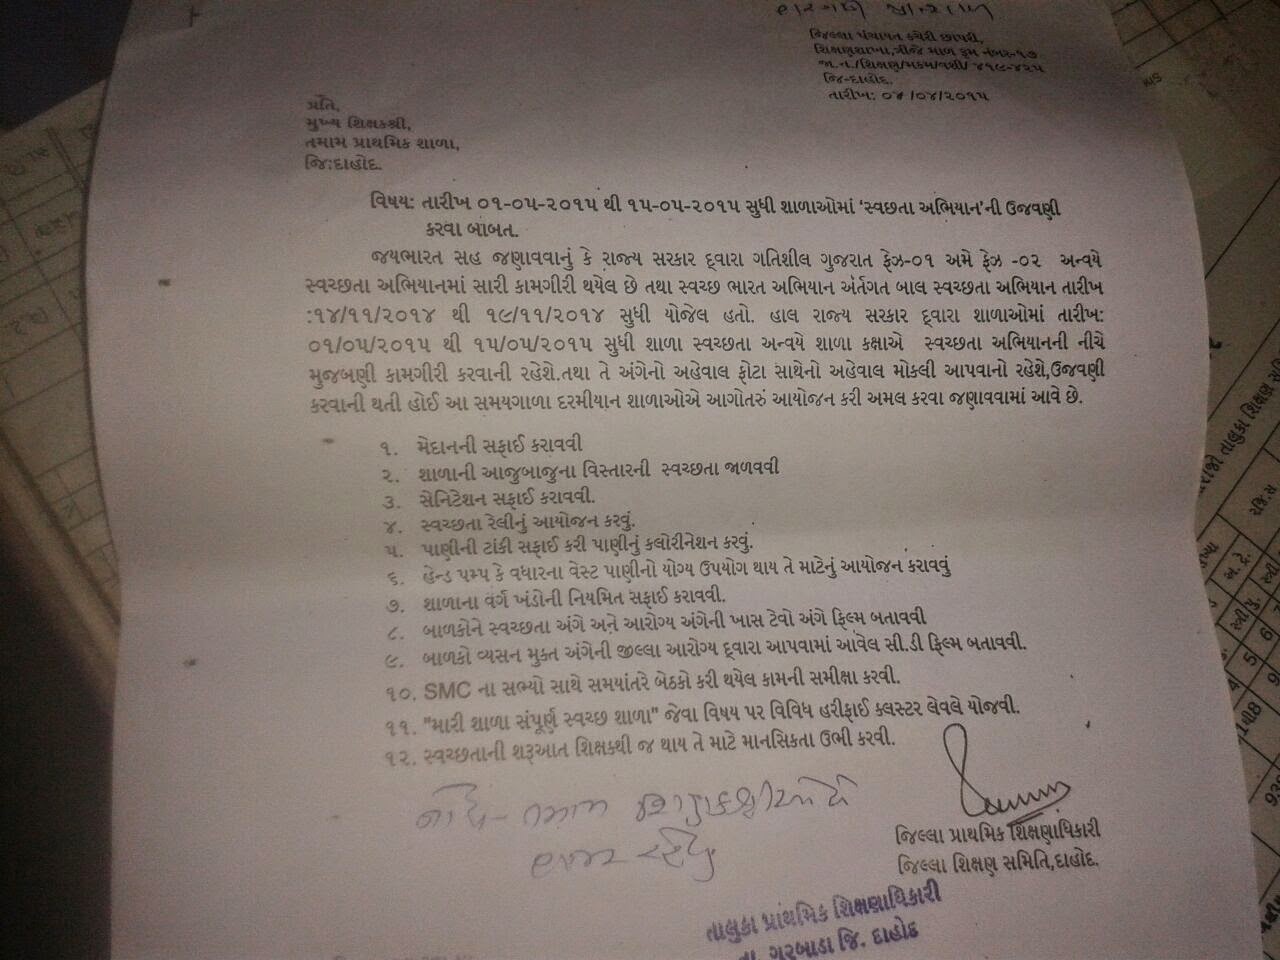 જિલ્લા પંચાયત કચેરી છાપરી,
શિક્ષણશાખા,ત્રીજે માળ રૂમ નંબર-૧૭
જા.ન./શિક્ષણ/મકમ/વશી/ ૪૧૯-૪૨૫
જિ-દાહોદ.
તારીખ: ૦૪ /૦૪/૨૦૧૫
પ્રતિ,
મુખ્ય શિક્ષકશ્રી,
તમામ પ્રાથમિક શાળા,
જિ:દાહોદ.
વિષય: તારીખ ૦૧-૦૫-૨૦૧૫ થી ૧૫-૦૫-૨૦૧૫ સુધી શાળાઓમાં ‘સ્વછતા અભિયાન’ની ઉજવણી
કરવા બાબત.
જયભારત સહ જણાવવાનું કે રાજ્ય સરકાર દ્વારા ગતિશીલ ગુજરાત ફેઝ-૦૧ અમે ફેઝ -૦૨ અન્વયે
સ્વચ્છતા અભિયાનમાં સારી કામગીરી થયેલ છે તથા સ્વચ્છ ભારત અભિયાન અંર્તગત બાલ સ્વચ્છતા અભિયાન તારીખ
:૧૪/૧૧/૨૦૧૪ થી ૧૯/૧૧/૨૦૧૪ સુધી યોજેલ હતો. હાલ રાજ્ય સરકાર દ્વારા શાળાઓમાં તારીખ:
૦૧/૦૫/૨૦૧૫ થી ૧૫/૦૫/૨૦૧૫ સુધી શાળા સ્વચ્છતા અન્વયે શાળા કક્ષાએ સ્વચ્છતા અભિયાનની નીચે
મુજબણી કામગીરી કરવાની રહેશે.તથા તે અંગેનો અહેવાલ ફોટા સાથેનો અહેવાલ મોકલી આપવાનો રહેશે,ઉજવણી
કરવાની થતી હોઈ આ સમયગાળા દરમીયાન શાળાઓએ આગોતરું આયોજન કરી અમલ કરવા જણાવવામાં આવે છે.
૧. મેદાનની સફાઈ કરાવવી
૨. શાળાની આજુબાજુના વિસ્તારની સ્વચ્છતા જાળવવી
૩. સેનિટેશન સફાઈ કરાવવી.
૪. સ્વચ્છતા રેલીનું આયોજન કરવું.
૫. પાણીની ટાંકી સફાઈ કરી પાણીનું કલોરીનેશન કરવું.
૬. હેન્ડ પમ્પ કે વધારના વેસ્ટ પાણીનો યોગ્ય ઉપયોગ થાય તે માટેનું આયોજન કરાવવું
૭. શાળાના વર્ગ ખંડોની નિયમિત સફાઈ કરાવવી.
૮. બાળકોને સ્વચ્છતા અંગે અને આરોગ્ય અંગેની ખાસ ટેવો અંગે ફિલ્મ બતાવવી
૯. બાળકો વ્યસન મુક્ત અંગેની જીલ્લા આરોગ્ય દ્વારા આપવામાં આવેલ સી.ડી ફિલ્મ બતાવવી.
૧૦. SMC ના સભ્યો સાથે સમયાંતરે બેઠકો કરી થયેલ કામની સમીક્ષા કરવી.
૧૧. "મારી શાળા સંપૂર્ણ સ્વચ્છ શાળા" જેવા વિષય પર વિવિધ હરીફાઈ કલસ્ટર લેવલે યોજવી.
૧૨. સ્વચ્છતાની શરૂઆત શિક્ષકથી જ થાય તે માટે માનસિકતા ઉભી કરવી.
નોંધ- તમામ શિક્ષકશ્રીઓએ
હાજર રહેવું
જિલ્લા પ્રાથમિક શિક્ષણાધિકારી
જિલ્લા શિક્ષણ સમિતિ,દાહોદ.
તાલુકા પ્રાથમિક શિક્ષણાધિકારી
તા. ગરબાડા જિ. દાહોદ